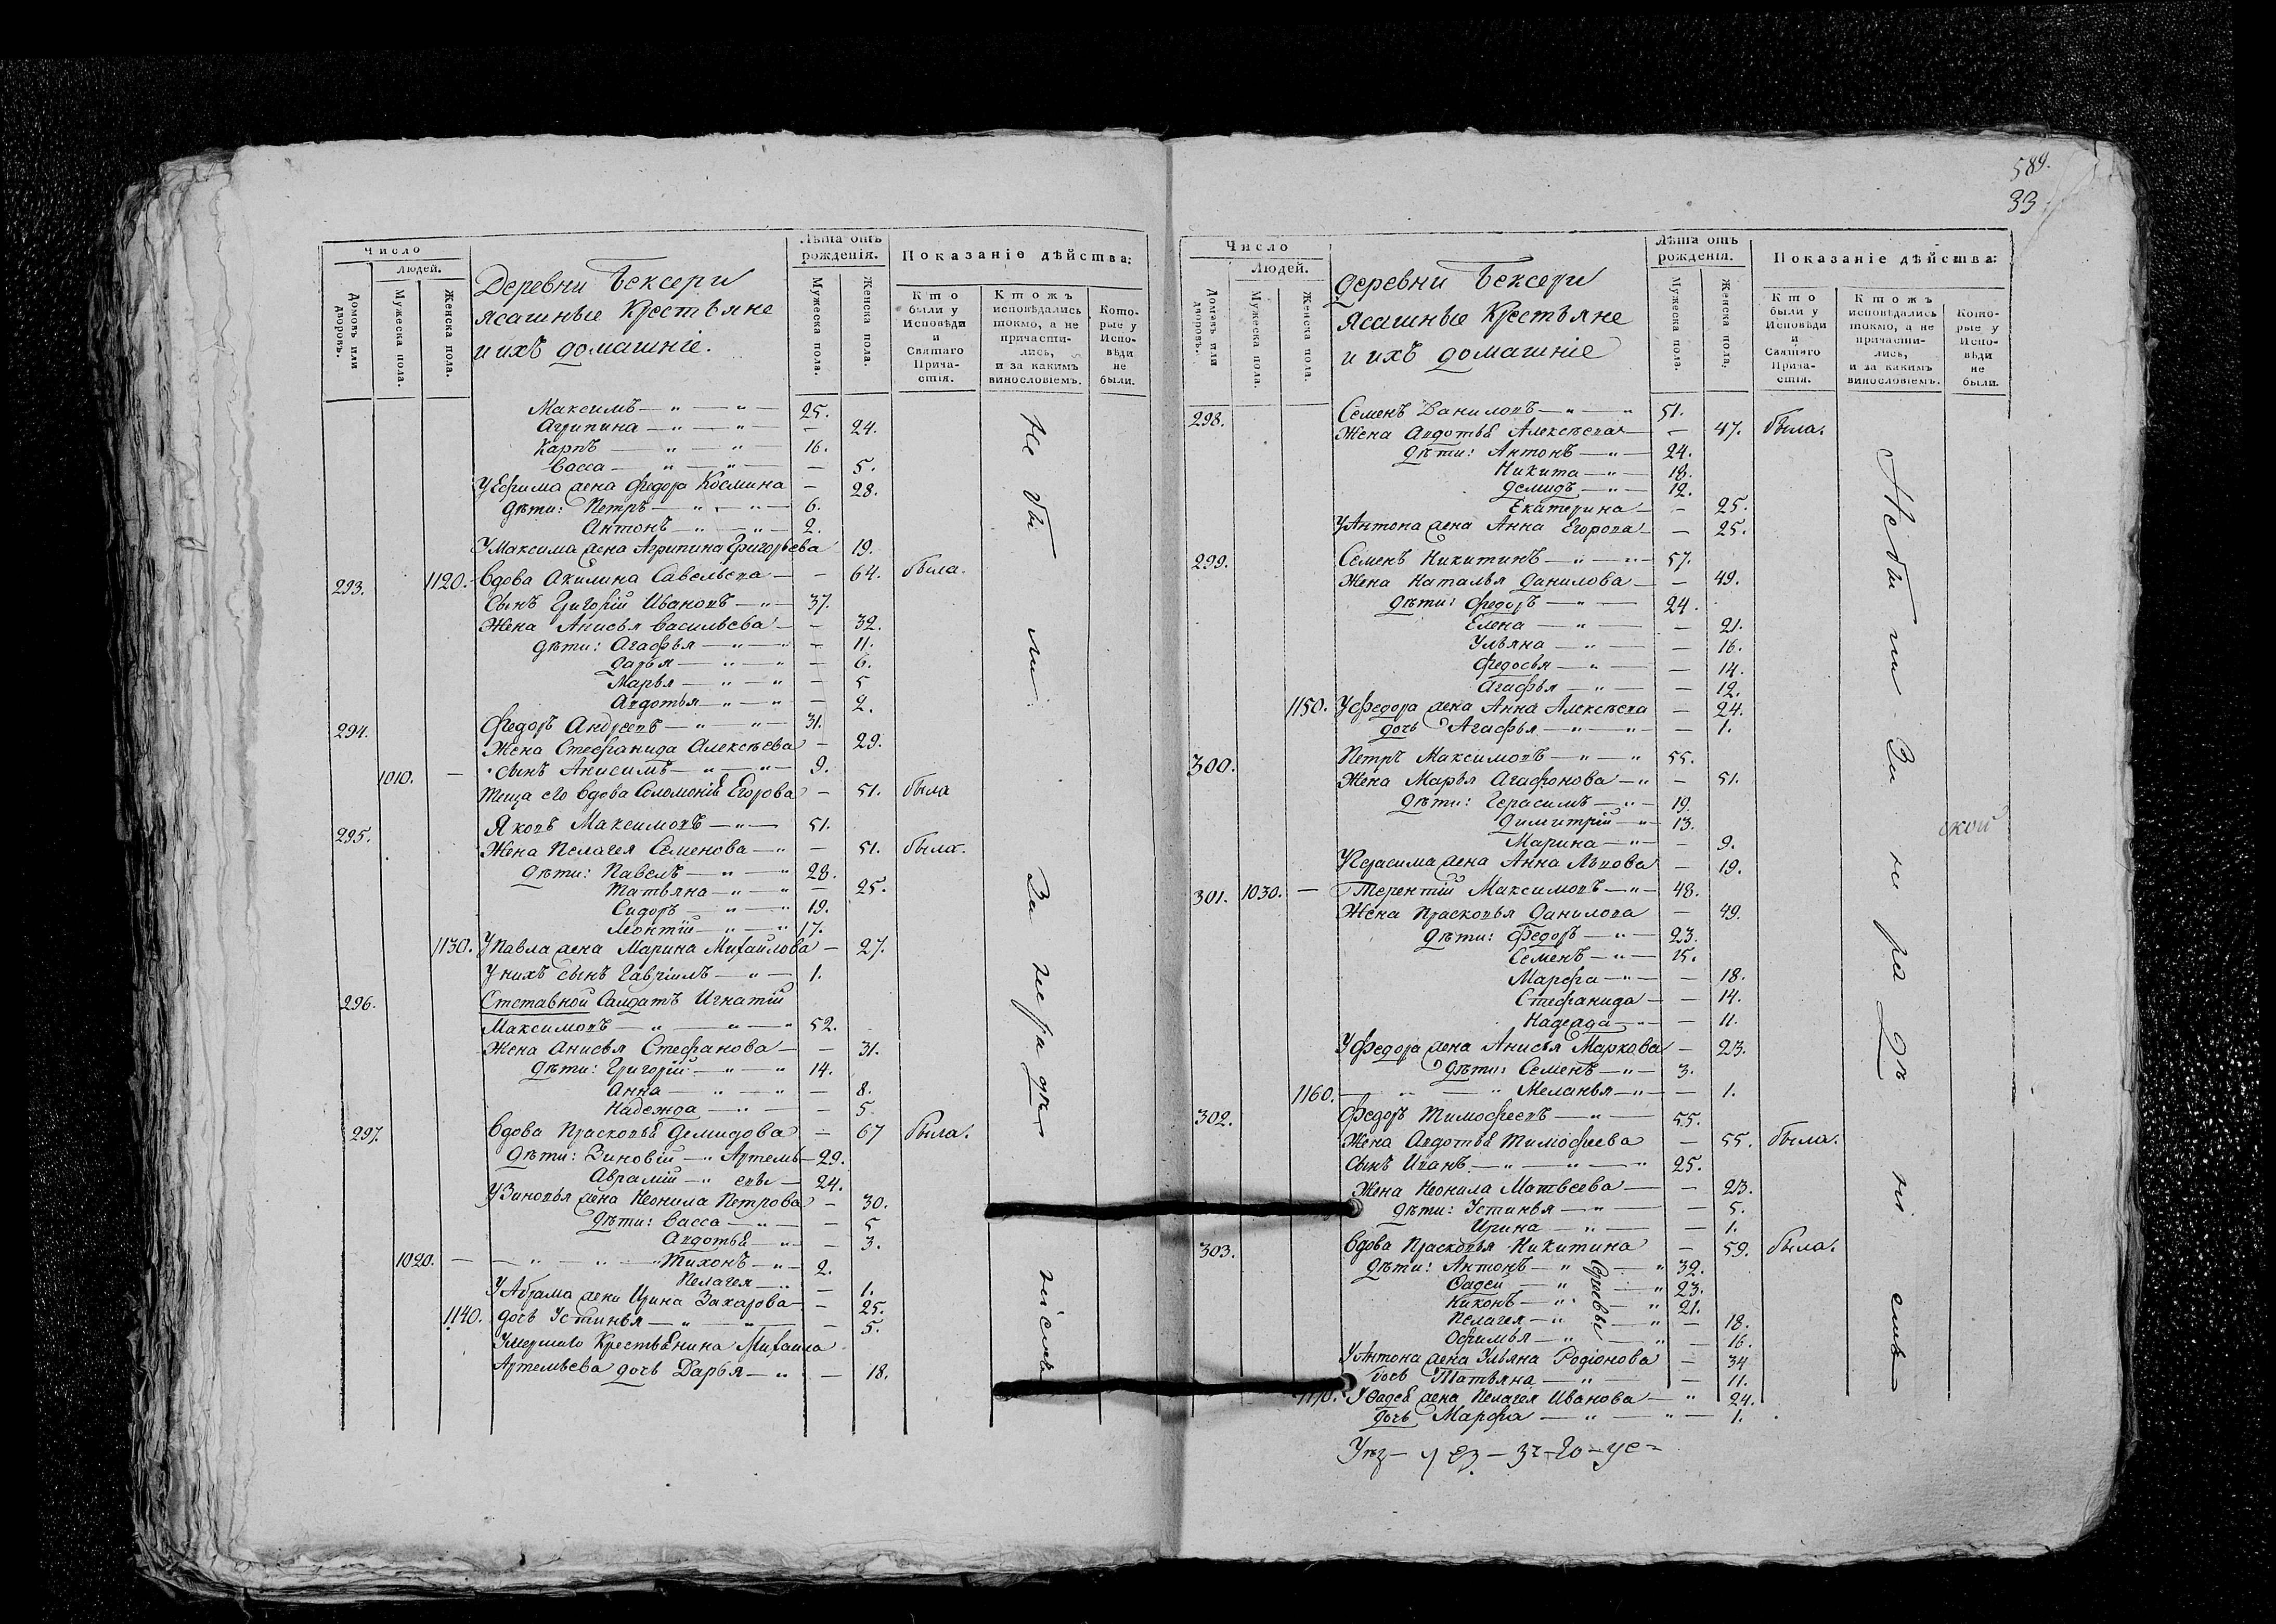 Число
Людей.
Домовъ или дворовъ.
Мужеска пола.
Женска пола.
Деревни Бексери
ясашные крестьяне
и ихъ домашніе.
Лѣта отъ рожденія.
Мужеска пола.
Женска пола.
Показаніе дѣйства:
Кто были у Исповѣди и Святаго Причастія.
Ктожъ исповѣдались токмо, а не причастились, и за какимъ винословіемъ.
Которые у Исповѣди не были.
Максимъ — „ — „ — 25.
Агрипина — „ — „ — 24.
Карпъ — „ — „ 16.
Васса — „ — „ — 5.
У Ефима жена Федора Космина — 28.
Дѣти: Петръ — „ — „ — 6.
Антонъ — „ — „ — 2.
У Максима жена Агрипина Григорьева 19.
293. 1120. Вдова Акилина Савельева — — 64. была.
Сынъ Григорій Ивановъ — „ — 37.
Жена Анисья Васильева — — 32.
дѣти: Агафья — „ — „ — 11.
Дарья — „ — „ — 6.
Марья — „ — „ — 5
Авдотья — „ — „ — 2.
294. Федоръ Андреевъ — „ — „ — 31.
Жена Стефанида Алексѣева — 29.
1010. — сынъ Анисимъ — „ — „ — 9.
теща его вдова Соломонія Егорова — 51. была
295. Яковъ Максимовъ — „ — 51.
Жена Пелагея Семенова — „ — 51. была.
Дѣти: Павелъ — „ — „ 28.
Татьяна — „ — „ — 25.
Сидоръ — „ — „ 19.
Леонтій — „ — „ 17.
1130. У Павла жена Марина Михайлова — 27.
У нихъ сынъ Гавріилъ — „ — 1.
296. Отставной Салдатъ Игнатій
Максимовъ — „ — „ — „ 52.
Жена Анисья Стефанова — — 31.
Дѣти: Григорій — „ — „ 14.
Анна — „ — „ — 8.
Надежда — „ — — 5
297. Вдова Прасковья Демидова — 67 была.
Дѣти: Зиновій — „ Артемь— 29.
Аврамій — „ евы — 24.
У Зиновья жена Неонила Петрова — 30.
Дѣти: Васса — „ — — 5
Авдотья — „ — 3.
1020. — — „ — „ — Тихонъ — „ — 2.
Пелагея — „ — 1.
У Абрама жена Ирина Захарова — — 25.
1140. дочь Устинья — „ — „ — — 5.
Умершаго Крестьянина Михаила
Артемьева дочь Дарья — „ — 18.
Не бы ли. За не ра дѣ ніемъ
589.
33
Число
Людей.
Домовъ или дворовъ.
Мужеска пола.
Женска пола.
Деревни Бексери
Ясашные Крестьяне
и ихъ домашніе
Лѣта отъ рожденія.
Мужеска пола.
Женска пола.
Показаніе дѣйства:
Кто были у Исповѣди и Святаго Причастія.
Ктожъ исповѣдались токмо, а не причастились, и за какимъ винословіемъ.
Которые у Исповѣди не были.
298. Семенъ Даниловъ — „ — „ 51.
Жена Авдотья Алексѣева — — 47. была.
Дѣти: Антонъ — „ — 24.
Никита — „ — 18.
Демидъ — „ — 12.
Екатерина — — 25.
У Антона жена Анна Егорова — — 25.
299. Семенъ Никитинъ — „ — „ — 57.
Жена Наталья Данилова — — 49.
Дѣти: Федоръ — „ — 24.
Елена — „ — — 21.
Ульяна — „ — — 16.
Федосья — „ — — 14.
Агафья — „ — — 12.
1150. У Федора жена Анна Алексѣева — 24.
дочь Агафья — „ — „ — — 1.
300. Петръ Максимовъ — „ — „ 55.
Жена Марья Агафонова — „ — 51.
Дѣти: Герасимъ — „ — 19.
Димитрій — „ — 13.
Марина — „ — — 9.
У Герасима жена Анна Львова — 19.
301. 1030. — Терентій Максимовъ — „ — 48.
Жена Прасковья Данилова — 49.
Дѣти: Федоръ — „ — 23.
Семенъ — „ — 15.
Марфа — „ — — 18.
Стефанида — — 14.
Надежда — „ — — 11.
У Федора жена Анисья Маркова — 23.
Дѣти: Семенъ — „ — 3.
1160. — „ — „ Меланья — „ — — 1.
302. Федоръ Тимофеевъ — „ — 55.
Жена Авдотья Тимофеева — 55. была.
Сынъ Иванъ — „ — „ — „ 25.
Жена Неонила Матвеева — — 23.
дѣти: Устинья — „ — — 5.
Ирина — „ — — 1.
303. Вдова Прасковья Никитина — 59. была.
Дѣти: Антонъ — „ — „ 32.
Фадей — „ — „ 23.
Никонъ — „ — „ 21.
Пелагея — „ — „ — 18.
Офимья — „ — „ — 16.
У Антона жена Ульяна Родіонова — 34
дочь Татьяна — „ — — 11.
1170. У Фадея жена Пелагея Иванова — „ 24.
дочь Марфа — „ — „ — 1.
Не бы ли. За не ра дѣ ні емъ
ской